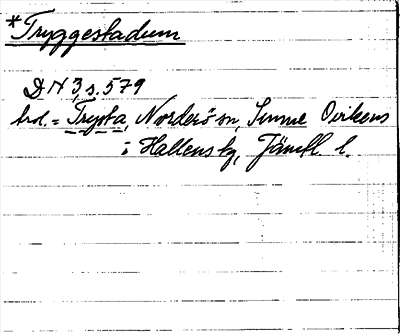 *Tryggestadum
DN 3, s. 579
trol. = Trysta, Norderö sn, Sunne Ovikens
i Hallens tg, Jämtl. l.